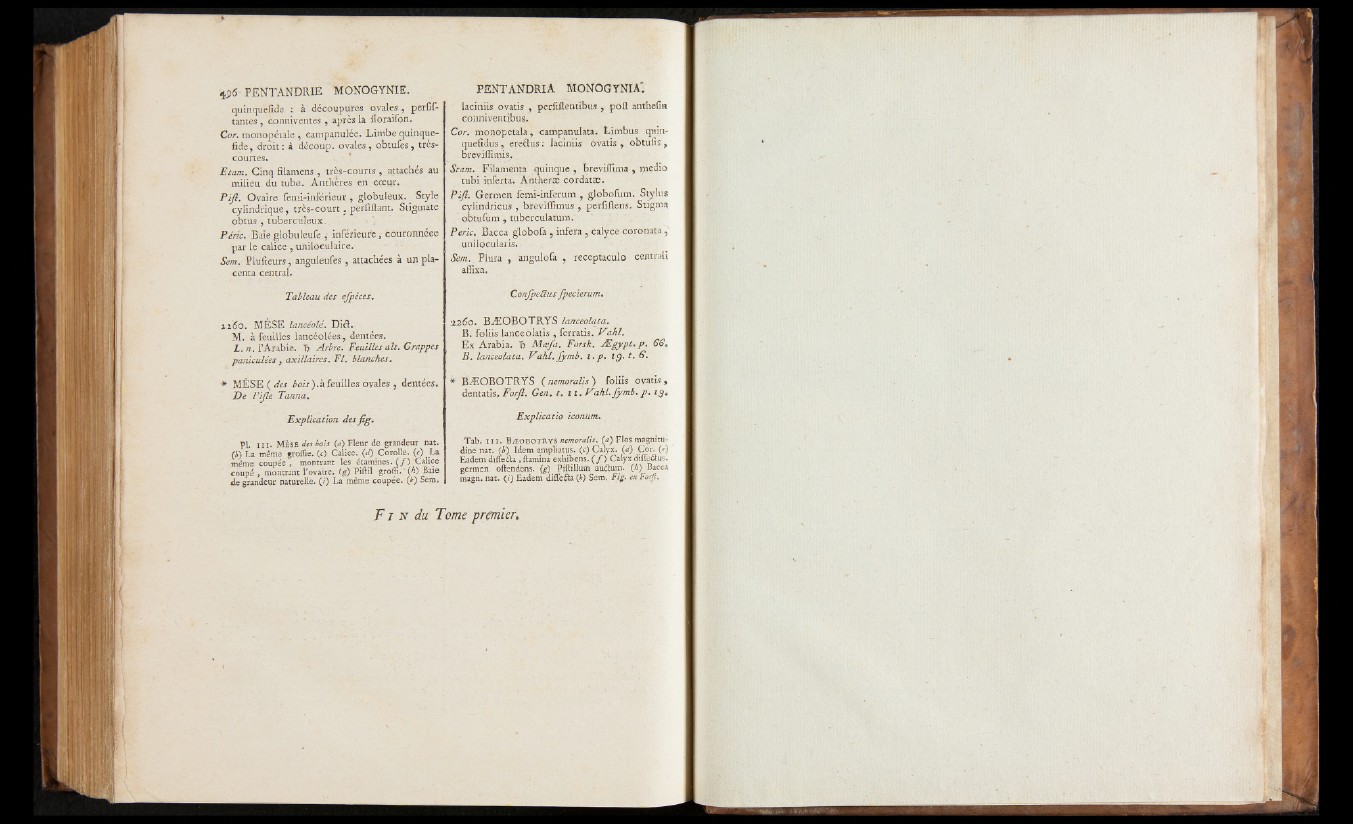 496 PENTANDRIE MONOGYNIE.
quinquefide : à découpures ovales, persis-
tantes, conniventes, après la floraison.
Cor. monopétale, campanulée. Limbe quinque-
fide, droit : à découp. ovales, obtuses, très-
courtes.
Etam. Cinq filamens, très-courts, attachés au
milieu du tube. Anthères en cœur.
Pist. Ovaire semi-inférieur, globuleux. Style
cylindrique, très-court, persistant. Stigmate
obtus, tuberculeux.
Péric. Baie globuleuse, inférieure, couronnéee
par le calice, uniloculaire.
Sem. Plusieurs, anguleuses, attachées à un pla-
centa central.
Tableau des espèces.
2260. MÈSE lancéolé. Dict.
M. à feuilles lancéolées, dentées.
L. n. l'Arabie. ♄ Arbre. Feuilles alt. Grappes
paniculées, axillaires. Fl. blanches.
* MÈSE (des bois) à feuilles ovales, dentées.
De l'isle Tanna.
Explication des fig.
Pl. 111. MÈSE des bois (a) Fleur de grandeur nat.
(b) La même grossie. (c) Calice. (d) Corolle. (e) La
même coupée, montrant les étamines. (f) Calice
coupé, montrant l'ovaire. (g) Pistil grossi. (h) Baie
de grandeur naturelle. (i) La même coupée. (k) Sem.
PENTANDRIA MONOGYNIA.
laciniis ovatis, persistentibus, post anthesin
conniventibus.
Cor. monopetala, campanulata. Limbus quin-
quefidus, erectus : laciniis ovatis, obtusis,
brevissimis.
Stam. Filamenta quinque, brevissima, medio
tubi inserta. Antheræ cordatæ.
Pist. Germen semi-inferum, globosum. Stylus
cylindricus, brevissimus, persistens. Stigma
obtusum, tuberculatum.
Peric. Bacca globosa, infera, calyce coronata,
unilocularis.
Sem. Plura, angulosa, receptaculo centrali
affixa.
Conspectus specierum.
2260. BÆOBOTRYS lanceolata.
B. foliis lanceolatis, serratis. Vahl.
Ex Arabia. ♄ Mæsa. Forsk. Ægypt. p. 66.
B. lanceolata. Vahl. symb. 1. p. 19. t. 6.
* BÆOBOTRYS (nemoralis) foliis ovatis,
dentatis. Forst. Gen. t. 11. Vahl. symb. p. 19.
Explicatio iconum.
Tab. 111. BÆOBOTRYS nemoralis. (a) Flos magnitu-
dine nat. (b) Idem ampliatus. (c) Calyx. (d) Cor. (e)
Eadem dissecta, stamina exhibens. (f) Calyx dissectus.
germen ostendens. (g) Pistillum auctum. (h) Bacca
magn. nat. (i) Eadem dissecta (k) Sem. Fig. en Forst.
FIN du Tome premier.